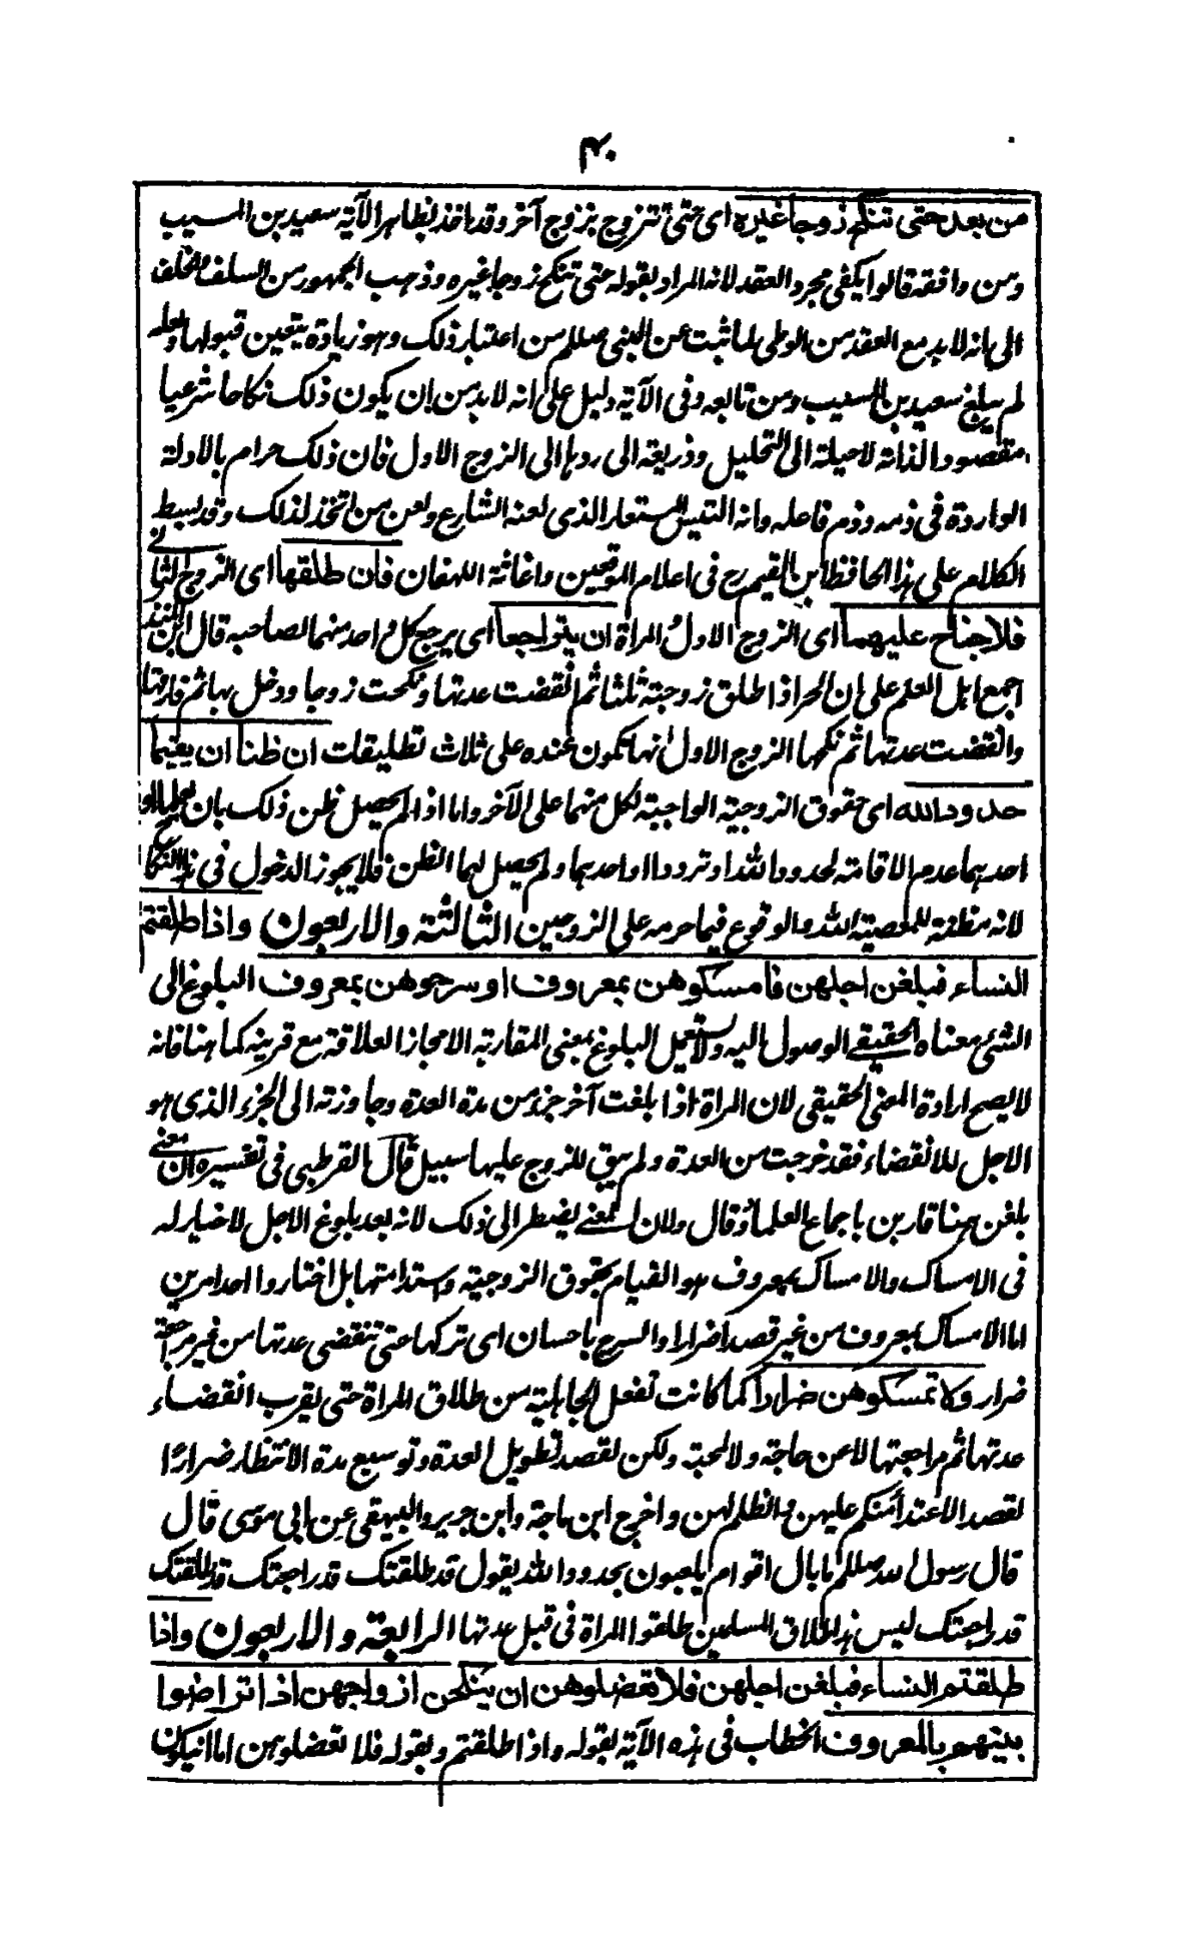 ۴۰
من بعد حتى تنكح زوجا غيره اى حتى تتزوج بزوج آخر وقد اخذ بظاهر الآية سعيد بن المسيب
ومن وافقه قالوا يكفى مجرد العقد لانه المراد بقوله حتى تنكح زوجا غيره وذهب الجمهور من السلف والخلف
الى انه لا بد مع العقد من الوطى لما ثبت عن النبى صللم من اعتبار ذلك وهو زيادة يتعين قبولها ولعله
لم يبلغ سعيد بن المسيب ومن تابعه وفى الآية دليل على انه لا بد من ان يكون ذلك نكاحا شرعيا
مقصودا لذاته لا حيلة الى التحليل وذريعة الى ردها الى الزوج الاول فان ذلك حرام بالادلة
الواردة فى ذمه وذم فاعله وانه التيس المستعار الذى لعنه الشارع ولعن من اتخذ لذلك وقد بسط
الكلام على هذا الحافظ ابن القيم رح فى اعلام الموقعين واغاثة اللهفان فان طلقها اى الزوج الثانى
فلا جناح عليهما اى الزوج الاول والمراة ان يتراجعا اى يرجع كل واحد منهما لصاحبه قال ابن المنذر
اجمع اهل العلم على ان الحر اذا طلق زوجته ثلثا ثم انقضت عدتها ونكحت زوجا ودخل بها ثم فارقها
وانقضت عدتها ثم نكحها الزوج الاول انها تكون عنده على ثلاث تطليقات ان ظنا ان يقيما
حدود الله اى حقوق الزوجية الواجبة لكل منهما على الآخر واما اذا لم يحصل ظن ذلك بان يعلما او
احدهما عدم الاقامة لحدود الله او ترددا او احدهما ولم يحصل لهما الظن فلا يجوز الدخول فى هذا النكاح
لانه مظنة للمعصية لله والوقوع فيما حرمه على الزوجين الثالثة والاربعون واذا طلقتم
النساء فبلغن اجلهن فامسكوهن بمعروف او سرحوهن بمعروف البلوغ الى
الشئ معناه الحقيقى الوصول اليه ولا يستعمل البلوغ بمعنى المقاربة الا مجازا لعلاقة مع قرينه كما هنا فانه
لا يصح ارادة المعنى الحقيقى لان المراة اذا بلغت آخر جزء من مدة العدة وجاوزته الى الجزء الذى هو
الاجل للانقضاء فقد خرجت من العدة ولم يبق للزوج عليها سبيل قال القرطبى فى تفسيره ان معنى
بلغن هنا قاربن باجماع العلماء وقال ولان المعنى يضطر الى ذلك لانه بعد بلوغ الاجل لا خيار له
فى الامساك والامساك بمعروف هو القيام بحقوق الزوجية واستدامتها بل اختاروا احد امرين
اما الامساك بمعروف من غير قصد اضرار او التسريح باحسان اى تركها حتى تنقضى عدتها من غير مراجعة
ضرار ولا تمسكوهن ضرارا كما كانت تفعل الجاهلية من طلاق المراة حتى يقرب انقضاء
عدتها ثم مراجعتها لا عن حاجة ولا لمحبة ولكن لقصد تطويل العدة وتوسيع مدة الانتظار ضرارًا
لقصد الاعتداء منكم عليهن والظلم لهن واخرج ابن ماجة وابن جرير والبيهقى عن ابى موسى قال
قال رسول الله صللم ما بال اقوام يلعبون بحدود الله يقول قد طلقتك قد راجعتك قد طلقتك
قد راجعتك ليس هذا طلاق المسلمين طلقوا المراة فى قبل عدتها الرابعة والاربعون واذا
طلقتم النساء فبلغن اجلهن فلا تعضلوهن ان ينكحن ازواجهن اذا تراضوا
بينهم بالمعروف الخطاب فى هذه الآية بقوله واذا طلقتم وبقوله فلا تعضلوهن اما ان يكون